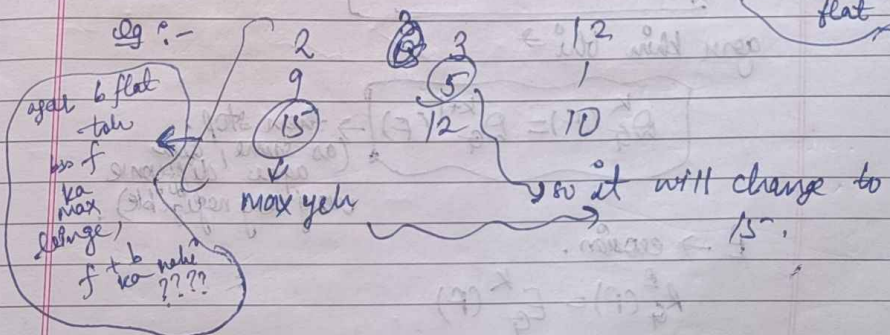 flat
eg :- 2 3 12
9 5 1
15 12 10
agar b flat
toh
bas f
ka
max
lenge,
f + b
ka nahi
????
max yeh
so it will change to
15.